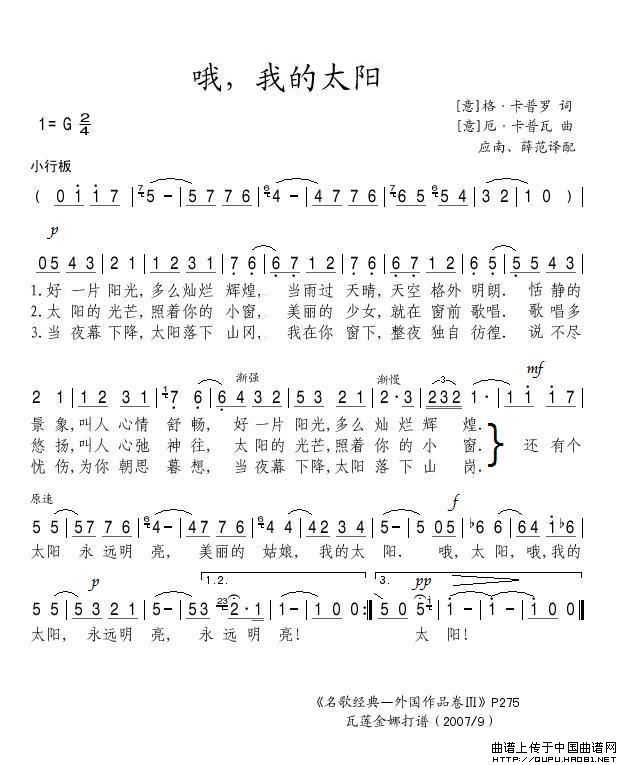 哦，我的太阳
1=G 2/4
[意]格·卡普罗 词
[意]厄·卡普瓦 曲
应南、薛范译配
小行板
( 0 i i 7 | 5 - | 5 7 7 6 | 4 - | 4 7 7 6 | 6 5 5 4 | 3 2 | 1 0 0 )
p
0 5 4 3 | 2 1 | 1 2 3 1 | 7 6 | 6 7 1 2 | 7 6 | 6 7 1 2 | 6 5 | 5 5 4 3
1.好 一片 阳光,多么灿烂 辉煌， 当雨过 天晴,天空 格外 明朗. 恬 静的
2.太 阳的 光芒,照着你的 小窗， 美丽的 少女,就在 窗前 歌唱. 歌 唱多
3.当 夜幕 下降,太阳落下 山冈， 我在你 窗下,整夜 独自 彷徨. 说 不尽
渐强 渐慢 mf
2 1 | 1 2 3 1 | 7 6 | 6 4 3 2 | 5 3 2 1 | 2·3 | 2 3 2 | 1· | i i i 7
景 象,叫人 心情 舒 畅， 好 一片 阳光,多么 灿 烂 辉 煌.
悠 扬,叫人 心弛 神 往， 太 阳的 光芒,照着 你 的 小 窗. 还 有个
忧 伤,为你 朝思 暮 想， 当 夜幕 下降,太阳 落 下 山 岗.
原速 f
5 5 | 5 7 7 6 | 4 - | 4 7 7 6 | 6 5 5 4 | 4 2 3 4 | 5 - | 5 0 5 | b6 6 | 6 4 i b6
太阳 永 远明 亮， 美丽的 姑娘，我的太 阳. 哦,太 阳,哦,我的
p 1.2. 3. pp
5 5 | 5 3 2 1 | 5 - | 5 3 2· 1 | 1 - | 1 0 0 :| 5 0 5 | i - | i - | i 0 0
太阳，永远明 亮，永 远 明 亮! 太 阳!
《名歌经典—外国作品卷III》P275
瓦莲金娜打谱（2007/9）
曲谱上传于中国曲谱网
HTTP://QUPU.HAO81.NET